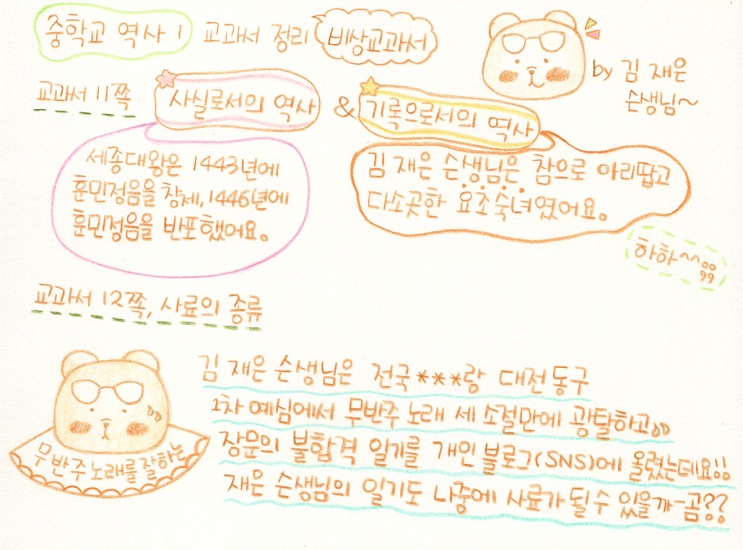 중학교 역사 1 교과서 정리 비상교과서
by 김 재은
슨생님~
교과서 11쪽 사실로서의 역사 & 기록으로서의 역사
세종대왕은 1443년에
훈민정음을 창제, 1446년에
훈민정음을 반포했어요.
김 재은 슨생님은 참으로 아리땁고
다소곳한 요조숙녀였어요.
하하^^;;
교과서 12쪽, 사료의 종류
무반주 노래를 잘하는
김 재은 슨생님은 전국***랑 대전 동구
1차 예심에서 무반주 노래 세 소절만에 광탈하고;;
장문의 불합격 일기를 개인 블로그(SNS)에 올렸는데요!!
재은 슨생님의 일기도 나중에 사료가 될 수 있을까-곰??